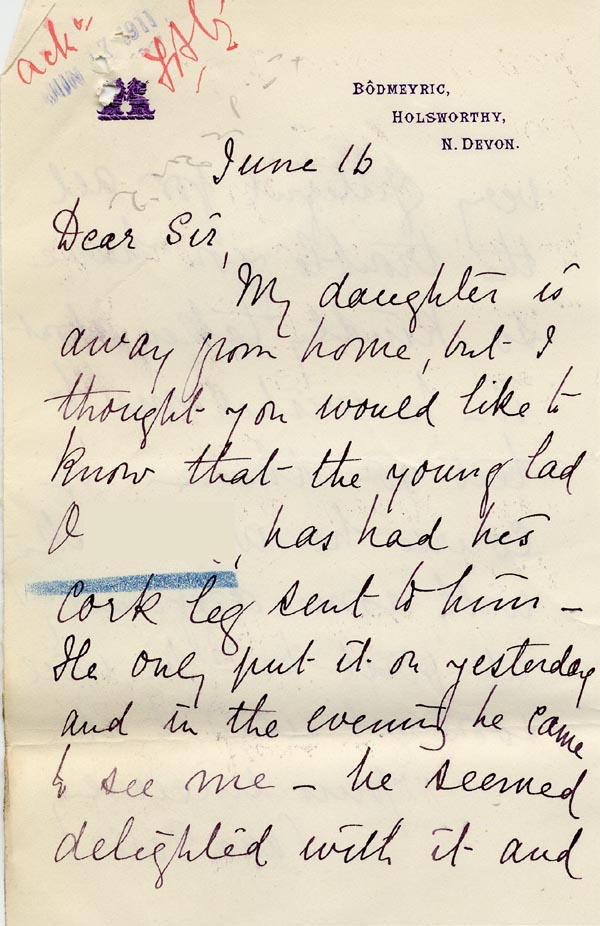 ackd
JUN 17 1911
BÔDMEYRIC,
HOLSWORTHY,
N. DEVON.
June 16
Dear Sir,
My daughter is
away from home, but I
thought you would like to
know that the young lad
O , has had his
cork leg sent to him –
He only put it on yesterday
and in the evening he came
to see me – he seemed
delighted with it and